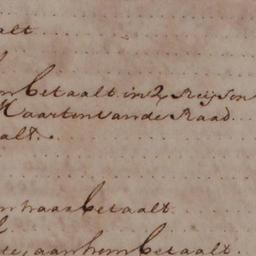 alt
betaalt in 2 Reijsen
Maarten van de Raad
alt.
haar betaalt
aan hem betaalt.